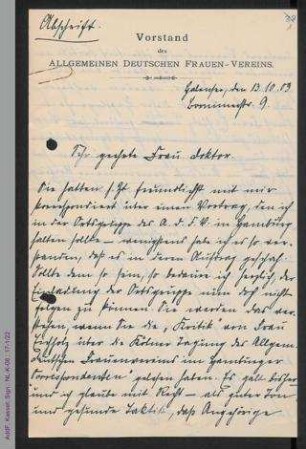 Abschrift.
Vorstand
des
ALLGEMEINEN DEUTSCHEN FRAUEN-VEREINS.
Halensee, den 13.10.03
Bornimerstr. 9
Sehr geehrte Frau Doktor.
Sie hatten s. Zt. freundlichst mit mir
korrespondiert über einen Vortrag, den ich
in der Ortsgruppe des A. D. F. V. in Hamburg
halten sollte – wenigstens habe ich es so ver-
standen, daß es in deren Auftrag geschah.
Sollte dem so sein, so bedaure ich herzlich, der
Einladung der Ortsgruppe nun doch nicht
folgen zu können. Sie werden das ver-
stehen, wenn Sie die „Kritik" von Frau
Eichholz über die Kölner Tagung des Allgem.
Deutschen Frauenvereins im Hamburger
Correspondenten gelesen haben. Es galt bisher
und ich glaube mit Recht – als guter Ton
und gesunde Taktik, daß Angehörige
AddF, Kassel, Sign.: NL-K-08 ; 17-1/22